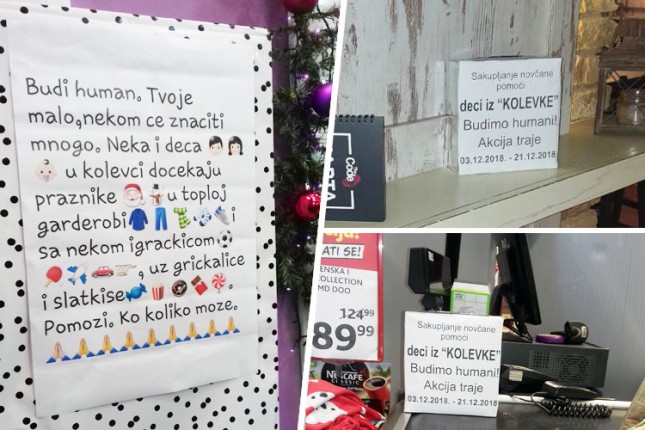 Budi human. Tvoje
malo,nekom ce znaciti
mnogo. Neka i deca 👦🏻👧🏻
👶🏻 u kolevci docekaju
praznike 🎅🏻⛄ u toploj
garderobi 👕👖🧣🧦 i
sa nekom igrackicom ⚽
🏓✈️🚗🔫, uz grickalice
i slatkise 🍬🍿🍩🍫🍭.
Pomozi. Ko koliko moze.
🙏🏻🙏🏻🙏🏻🙏🏻🙏🏻🙏🏻🙏🏻🙏🏻🙏🏻
Sakupljanje novčane
pomoći
deci iz “KOLEVKE”
Budimo humani!
Akcija traje
03.12.2018. - 21.12.2018.
Code
ATI SE!
ENSKA I
COLLECTION
MD DOO
124.99
89.99
NESCAFÉ
CLASSIC
Sakupljanje novčane
pomoći
deci iz “KOLEVKE”
Budimo humani!
Akcija traje
03.12.2018. - 21.12.2018